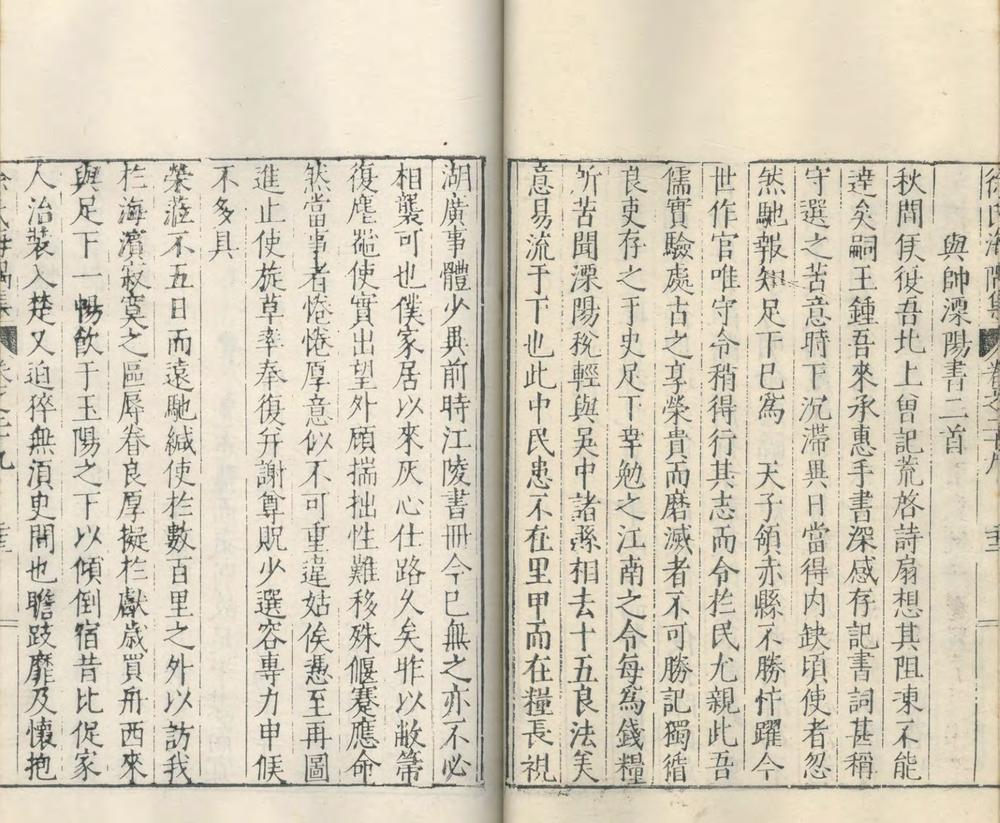 與帥溧陽書二首
秋間侯復吾北上曾記荒啓詩扇想其阻凍不能
達矣嗣王鍾吾來承惠手書深感存記書詞甚稱
守選之苦意時下沉滯異日當得内缺頃使者忽
然馳報知足下已爲　天子領赤縣不勝忭躍今
世作官唯守令稍得行其志而令於民尤親此吾
儒實驗處古之享榮貴而磨滅者不可勝記獨循
良吏存之于史足下幸勉之江南之令每爲錢糧
所苦聞溧陽稅輕與吳中諸縣相去十五良法美
意易流于下也此中民患不在里甲而在糧長視
湖廣事體少異前時江陵書冊今已無之亦不必
相襲可也僕家居以來灰心仕路久矣昨以敝箒
復塵菴使實出望外顧揣拙性難移殊偃蹇應命
然當事者惓惓厚意似不可重違姑俟憑至再圖
進止使旋草率奉復并謝尊貺少選容專力申候
不多具
榮蒞不五日而遠馳緘使於數百里之外以訪我
於海濱寂寞之區辱眷良厚擬於獻歲買舟西來
與足下一暢飲于玉陽之下以傾倒宿昔比促家
人治裝入楚又迫猝無須臾間也瞻跂靡及懷抱